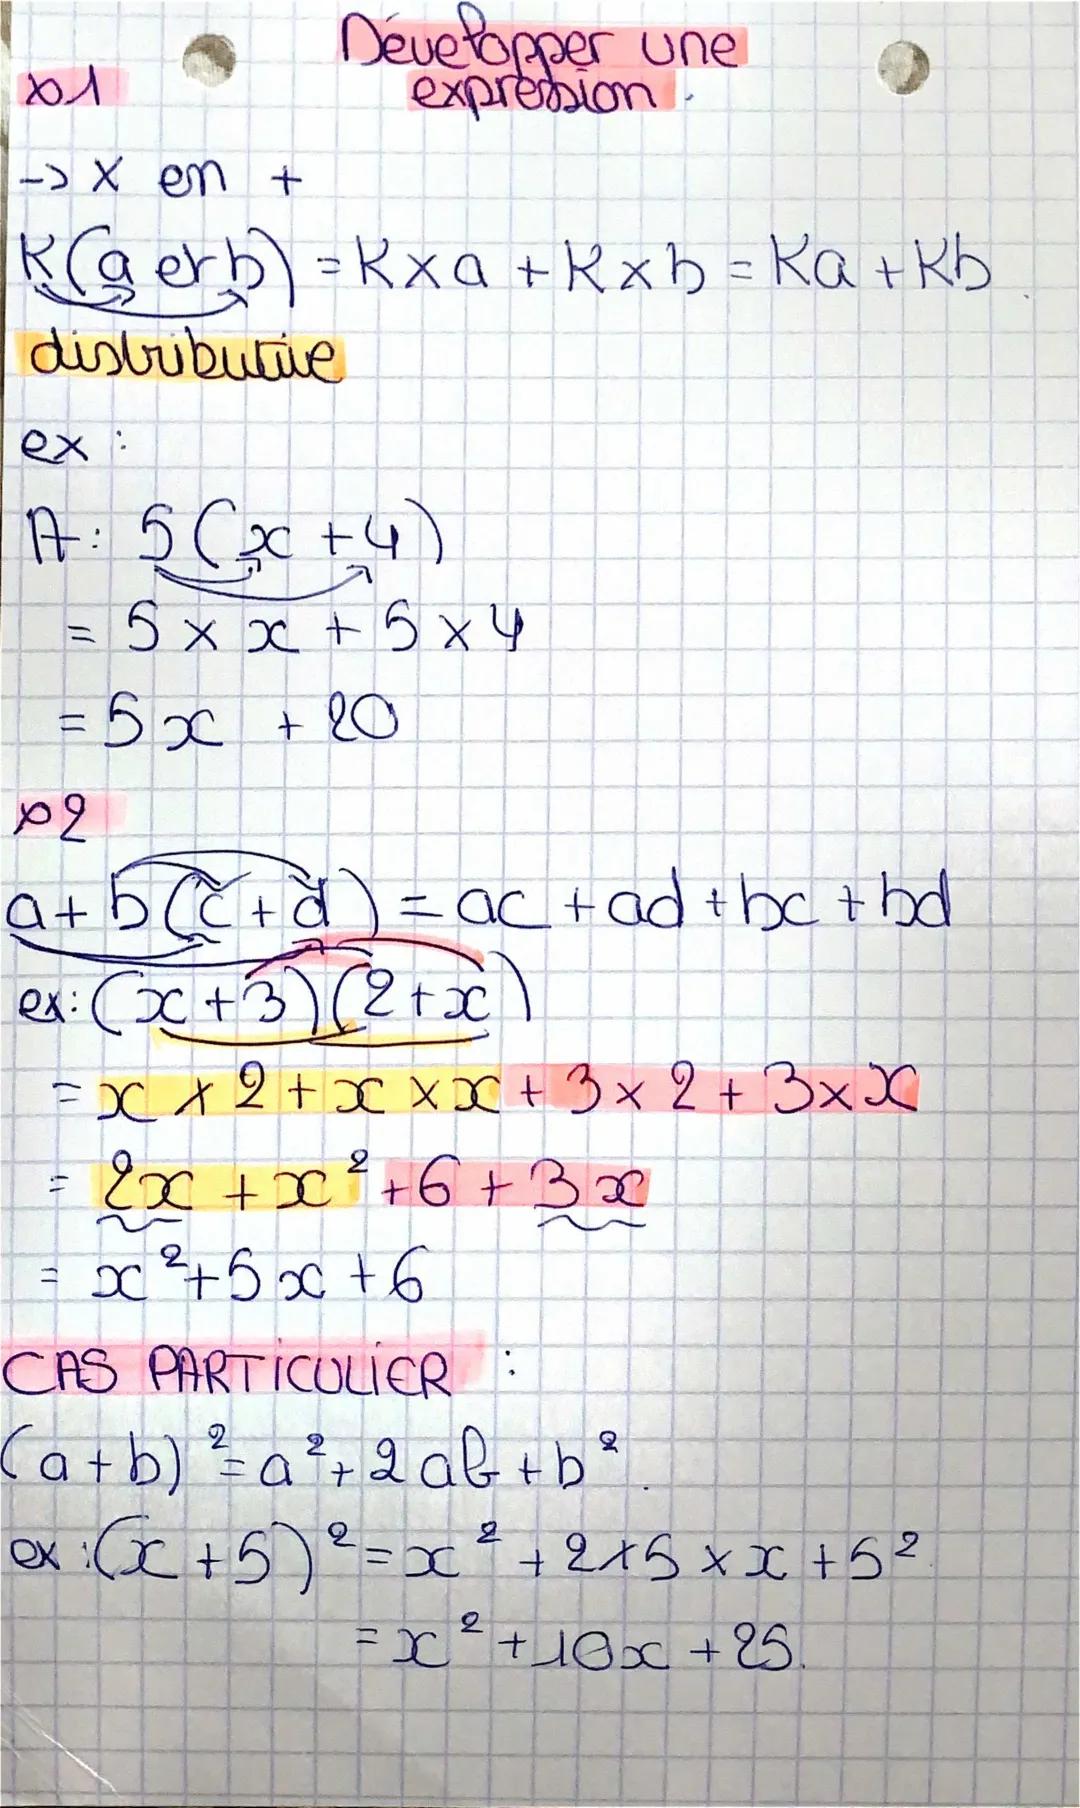 Développer une
expression.
p1
-> x en +
K(a et b) = K x a + K x b = Ka + Kb.
distributive
ex :
A : 5(x + 4)
= 5 x x + 5 x 4
= 5x + 20
p2
a + b(c + d) = ac + ad + bc + bd
ex : (x + 3)(2 + x)
= x x 2 + x x x + 3 x 2 + 3 x x
= 2x + x² + 6 + 3x
= x² + 5x + 6
CAS PARTICULIER :
(a + b)² = a² + 2ab + b².
ex : (x + 5)² = x² + 2 x 5 x x + 5²
= x² + 10x + 25.